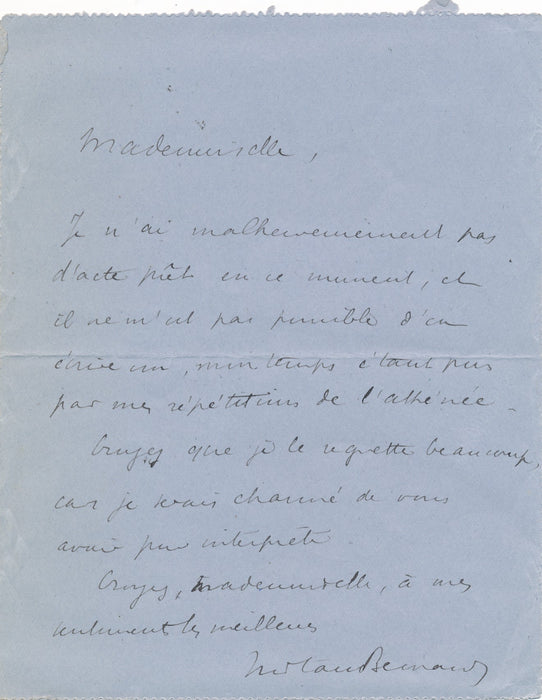 Mademoiselle,
Je n'ai malheureusement pas
d'acte prêt en ce moment, et
il ne m'est pas possible d'en
écrire un, mon temps étant pris
par mes répétitions de l'athénée.
Croyez que je le regrette beaucoup,
car je serais charmé de vous
avoir pour interprète.
Croyez, mademoiselle, à mes
sentiments les meilleurs
Tristan Bernard